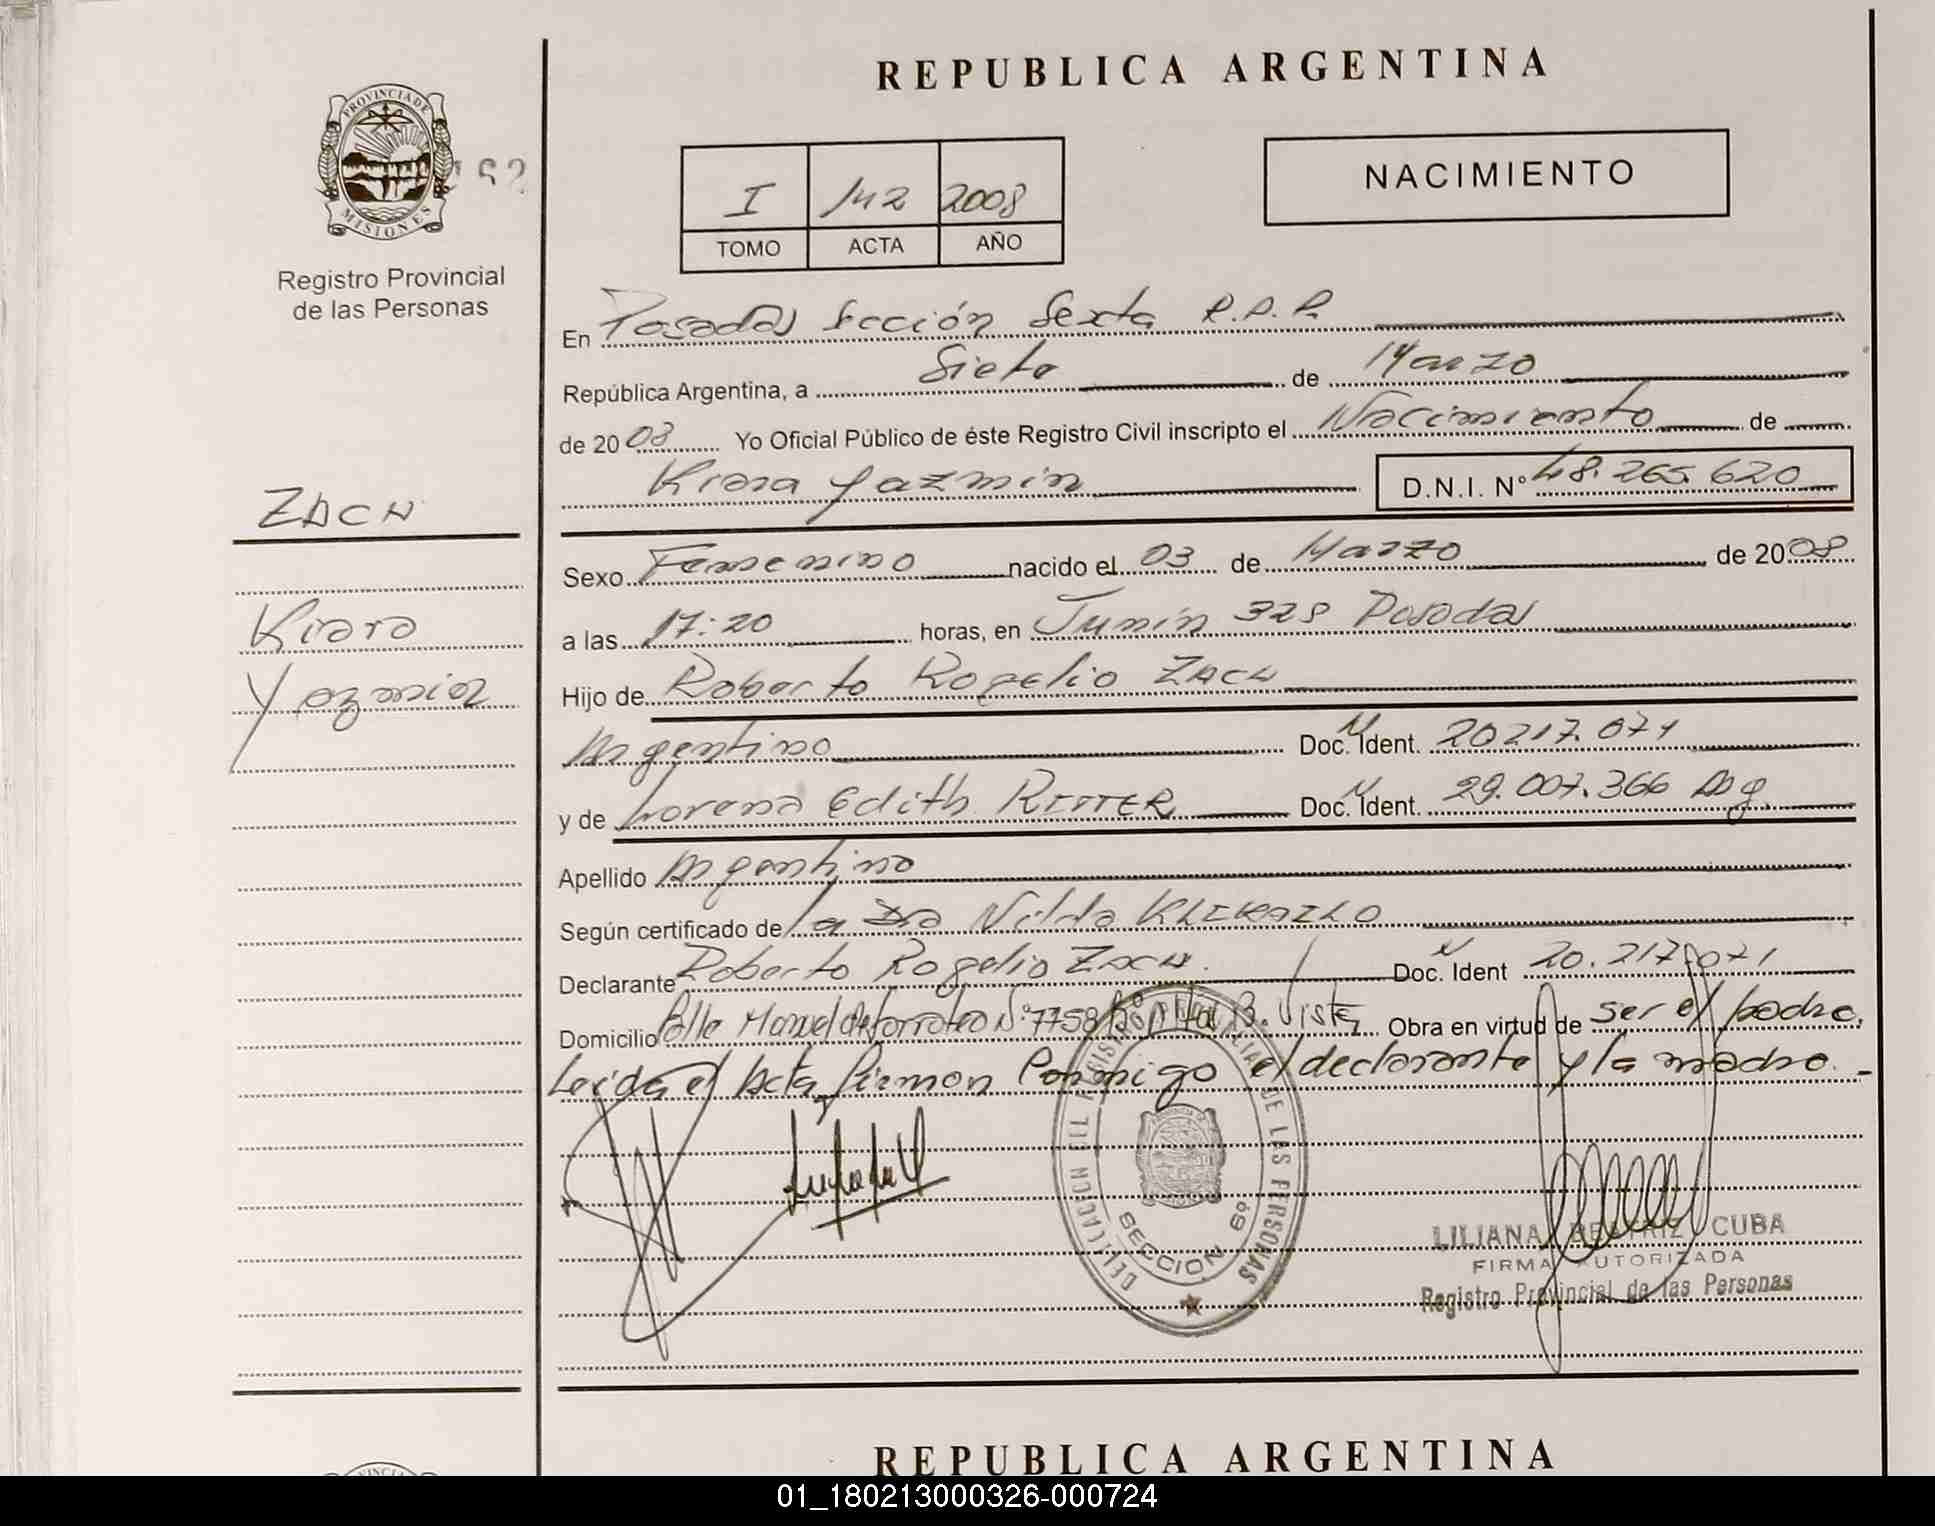 REPUBLICA ARGENTINA
PROVINCIA DE MISIONES
Registro Provincial
de las Personas
I 142 2008
TOMO ACTA AÑO
NACIMIENTO
En Posadas Sección Sexta R.P.P.
República Argentina, a Siete de Marzo
de 2008 Yo Oficial Público de éste Registro Civil inscripto el Nacimiento de
Kiara Yazmin D.N.I. N° 48.265.620
ZACH
Kiara
Yazmin
Sexo Femenino nacido el 03 de Marzo de 2008
a las 17:20 horas, en Junín 328 Posadas
Hijo de Roberto Rogelio ZACH
Argentino Doc. N Ident. 20.217.071
y de Lorena Edith RITTER Doc. N Ident. 29.007.366 Arg.
Apellido Argentino
Según certificado de la Dra Nilda
Declarante Roberto Rogelio ZACH. Doc. N Ident 20.217.071
Domicilio Calle Manuel de N° 7758 B. Vista Obra en virtud de ser el padre.
Leída el Acta firman Conmigo el declarante y la madre.-
DELEGACION DEL REGISTRO PROVINCIAL DE LAS PERSONAS
SECCION 6º
LILIANA BEATRIZ CUBA
FIRMA AUTORIZADA
Registro Provincial de las Personas
REPUBLICA ARGENTINA
01_180213000326-000724